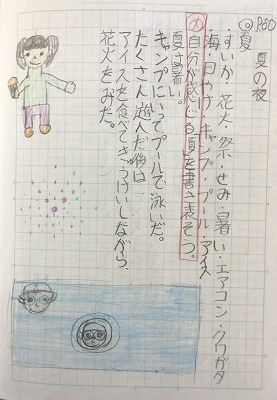 P60
◎夏 夏の夜
・すいか・花火・祭・せみ・暑い・エアコン・クワガタ
・海・日やけ・キャンプ・プール・アイス
め 自分が感じる夏を書き表そう。
夏は暑い。
キャンプにいってプールで泳いだ。
たくさん遊んだ後は
アイスを食べてきゅうけいしながら、
花火をみた。